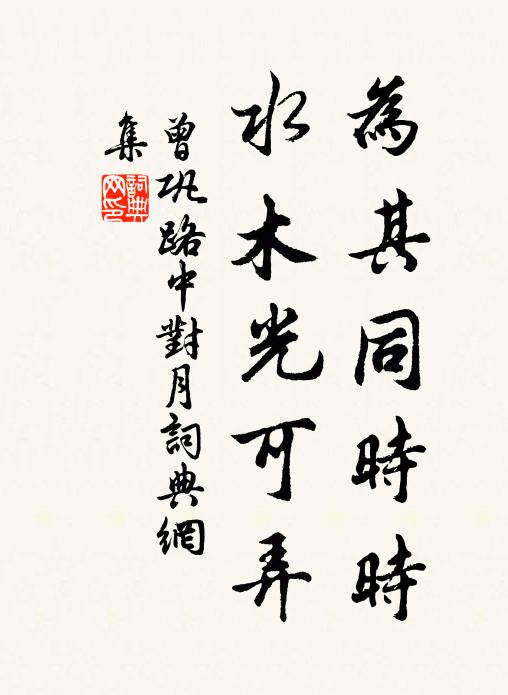 為其同時時
水木光可弄
曾巩路中對月詞典網
集
詞典
网印